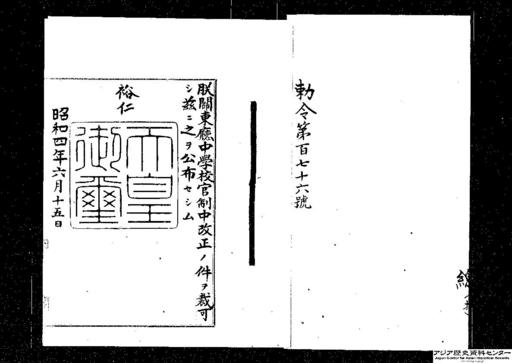 勅令第百七十六號
朕關東廳中學校官制中改正ノ件ヲ裁可
シ茲ニ之ヲ公布セシム
裕仁
天皇御璽
昭和四年六月十五日
アジア歴史資料センター
Japan Center for Asian Historical Records